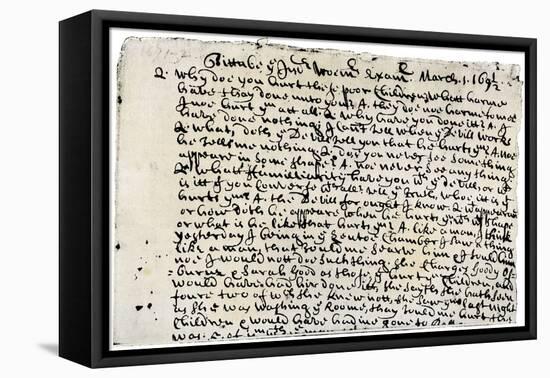 Tittabe ye Indn Woemn Exam March. 1. 169½
Q. why doe you hurt these poor Children? whatt harme
have thay done unto you? A. they doe noe harme to me
I noe hurt ym att all. Q. why have you done itt? A. I
have done nothing; I Can't tell when ye Devill works
Q. what doth ye Devill tell you that he hurts ym? A. noe
he tells me nothing. Q. doe you never See Something
appeare in Some shape? A. noe never See any thing.
Q. whatt familiarity have you wth ye devill, or wt
is itt yt you Converse wthall? tell ye truth, whoe itt is yt
hurts ym? A. the Devill for ought I know. Q. wt
or how doth he appeare when he hurts ym,
or what is he like that hurts ym? A. like a man, I think
yesterday I being in ye Leantoe Chamber I saw a thing
like a man, that tould me
noe I would nott doe Such thing. She Charges Goody
burne & Sarah Good as those yt hurt ye Children, and
would have had hir done itt, she sayth she hath Seen
foure two of wch she knew nott, she saw ym last night
as she was washing ye Roome, thay tould me hurt the
Children & would have had me gone to